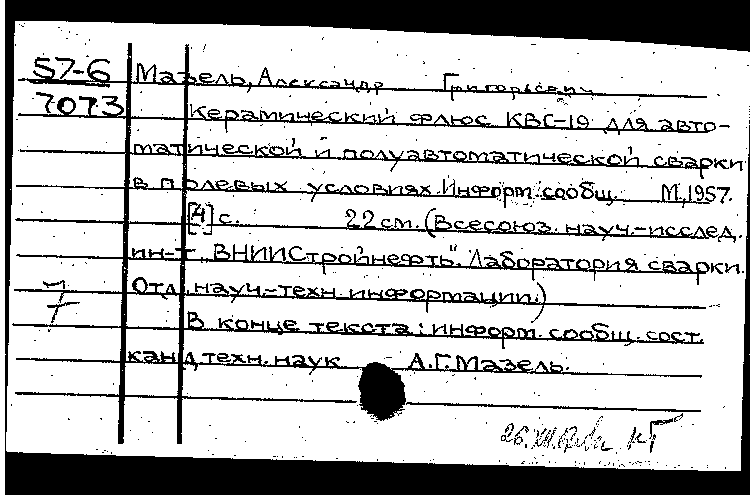 57-6 Мазель, Александр Григорьевич
7073 Керамический флюс КВС-19 для авто-
матической и полуавтоматической сварки
в полевых условиях. Информ. сообщ. М., 1957.
[4] с. 22 см. (Всесоюз. науч.-исслед.
ин-т „ВНИИСтройнефть". Лаборатория сварки.
Отд. науч.-техн. информации.)
В конце текста: информ. сообщ. сост.
канд. техн. наук А.Г. Мазель.
26.XII.